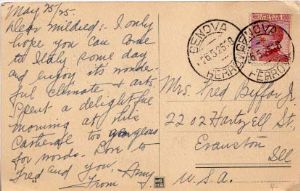 May 25/25.
Dear Mildred: I only
hope you can come
to Italy some day
and enjoy its wonder-
ful climate & arts
Spent a delightful
morning at this
too gorgeous
for words. Love to
Fred and you
From Amy.
GENOVA
FERROVIA
GENOVA
FERRO
Mrs. Fred Buffor Jr.
22 02 Hartzell St.
Evanston
Ill
U.S.A.